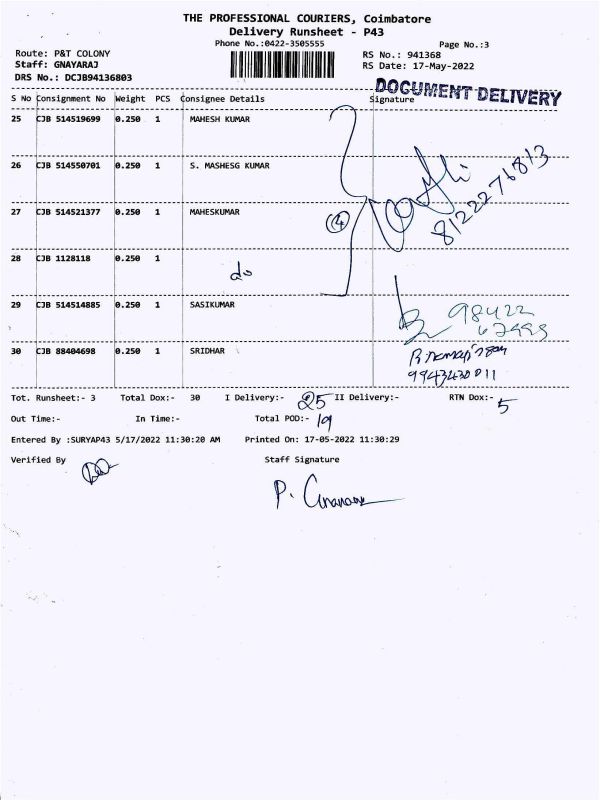 THE PROFESSIONAL COURIERS, Coimbatore
Delivery Runsheet - P43
Phone No.:0422-3505555
Page No.:3
Route: P&T COLONY
RS No.: 941368
Staff: GNAYARAJ
RS Date: 17-May-2022
DRS No.: DCJB94136803
DOCUMENT DELIVERY
S No Consignment No Weight PCS Consignee Details Signature
25 CJB 514519699 0.250 1 MAHESH KUMAR
26 CJB 514550701 0.250 1 S. MASHESG KUMAR
8122276813
27 CJB 514521377 0.250 1 MAHESKUMAR
4
28 CJB 1128118 0.250 1
do
29 CJB 514514885 0.250 1 SASIKUMAR
98422
30 CJB 88404698 0.250 1 SRIDHAR
9943430011
Tot. Runsheet:- 3 Total Dox:- 30 I Delivery:- 25 II Delivery:- RTN Dox:- 5
Out Time:- In Time:- Total POD:- 19
Entered By :SURYAP43 5/17/2022 11:30:20 AM Printed On: 17-05-2022 11:30:29
Verified By Staff Signature